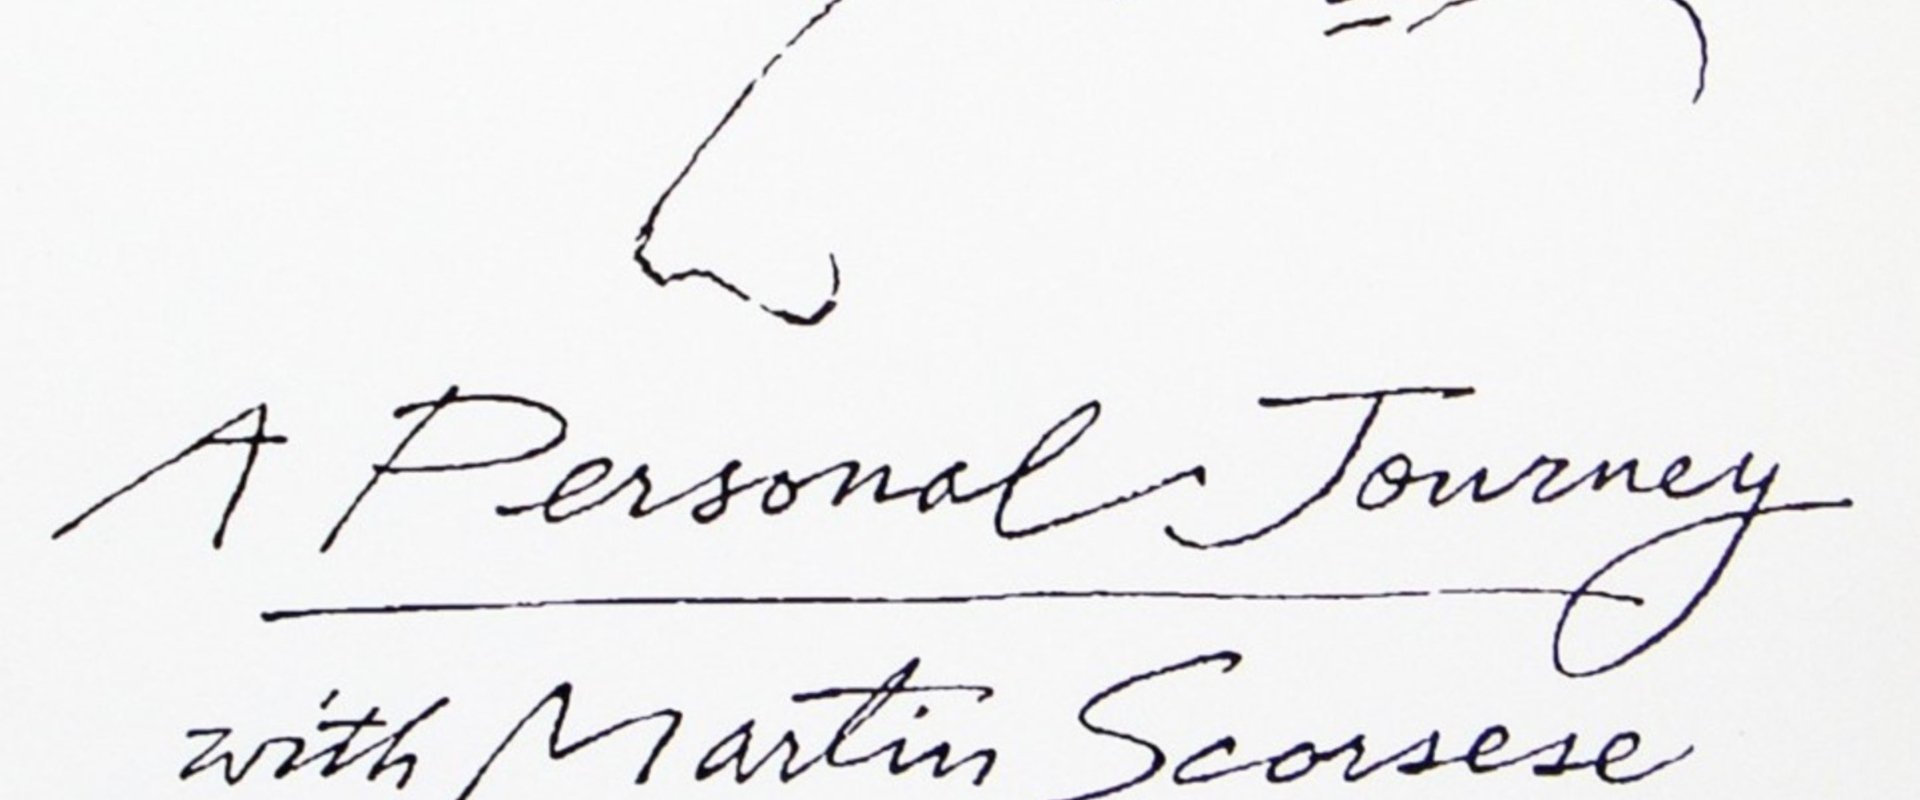 A Personal Journey
with Martin Scorsese